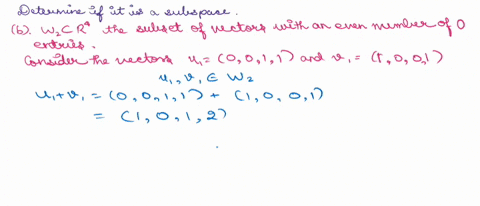 Determine if it is a subspace.
(b). W₂⊂R⁴ the subset of vectors with an even number of 0
entries.
Consider the vectors u₁=(0,0,1,1) and v₁=(1,0,0,1)
u₁,v₁ ∈ W₂
u₁+v₁ = (0,0,1,1) + (1,0,0,1)
= (1,0,1,2)